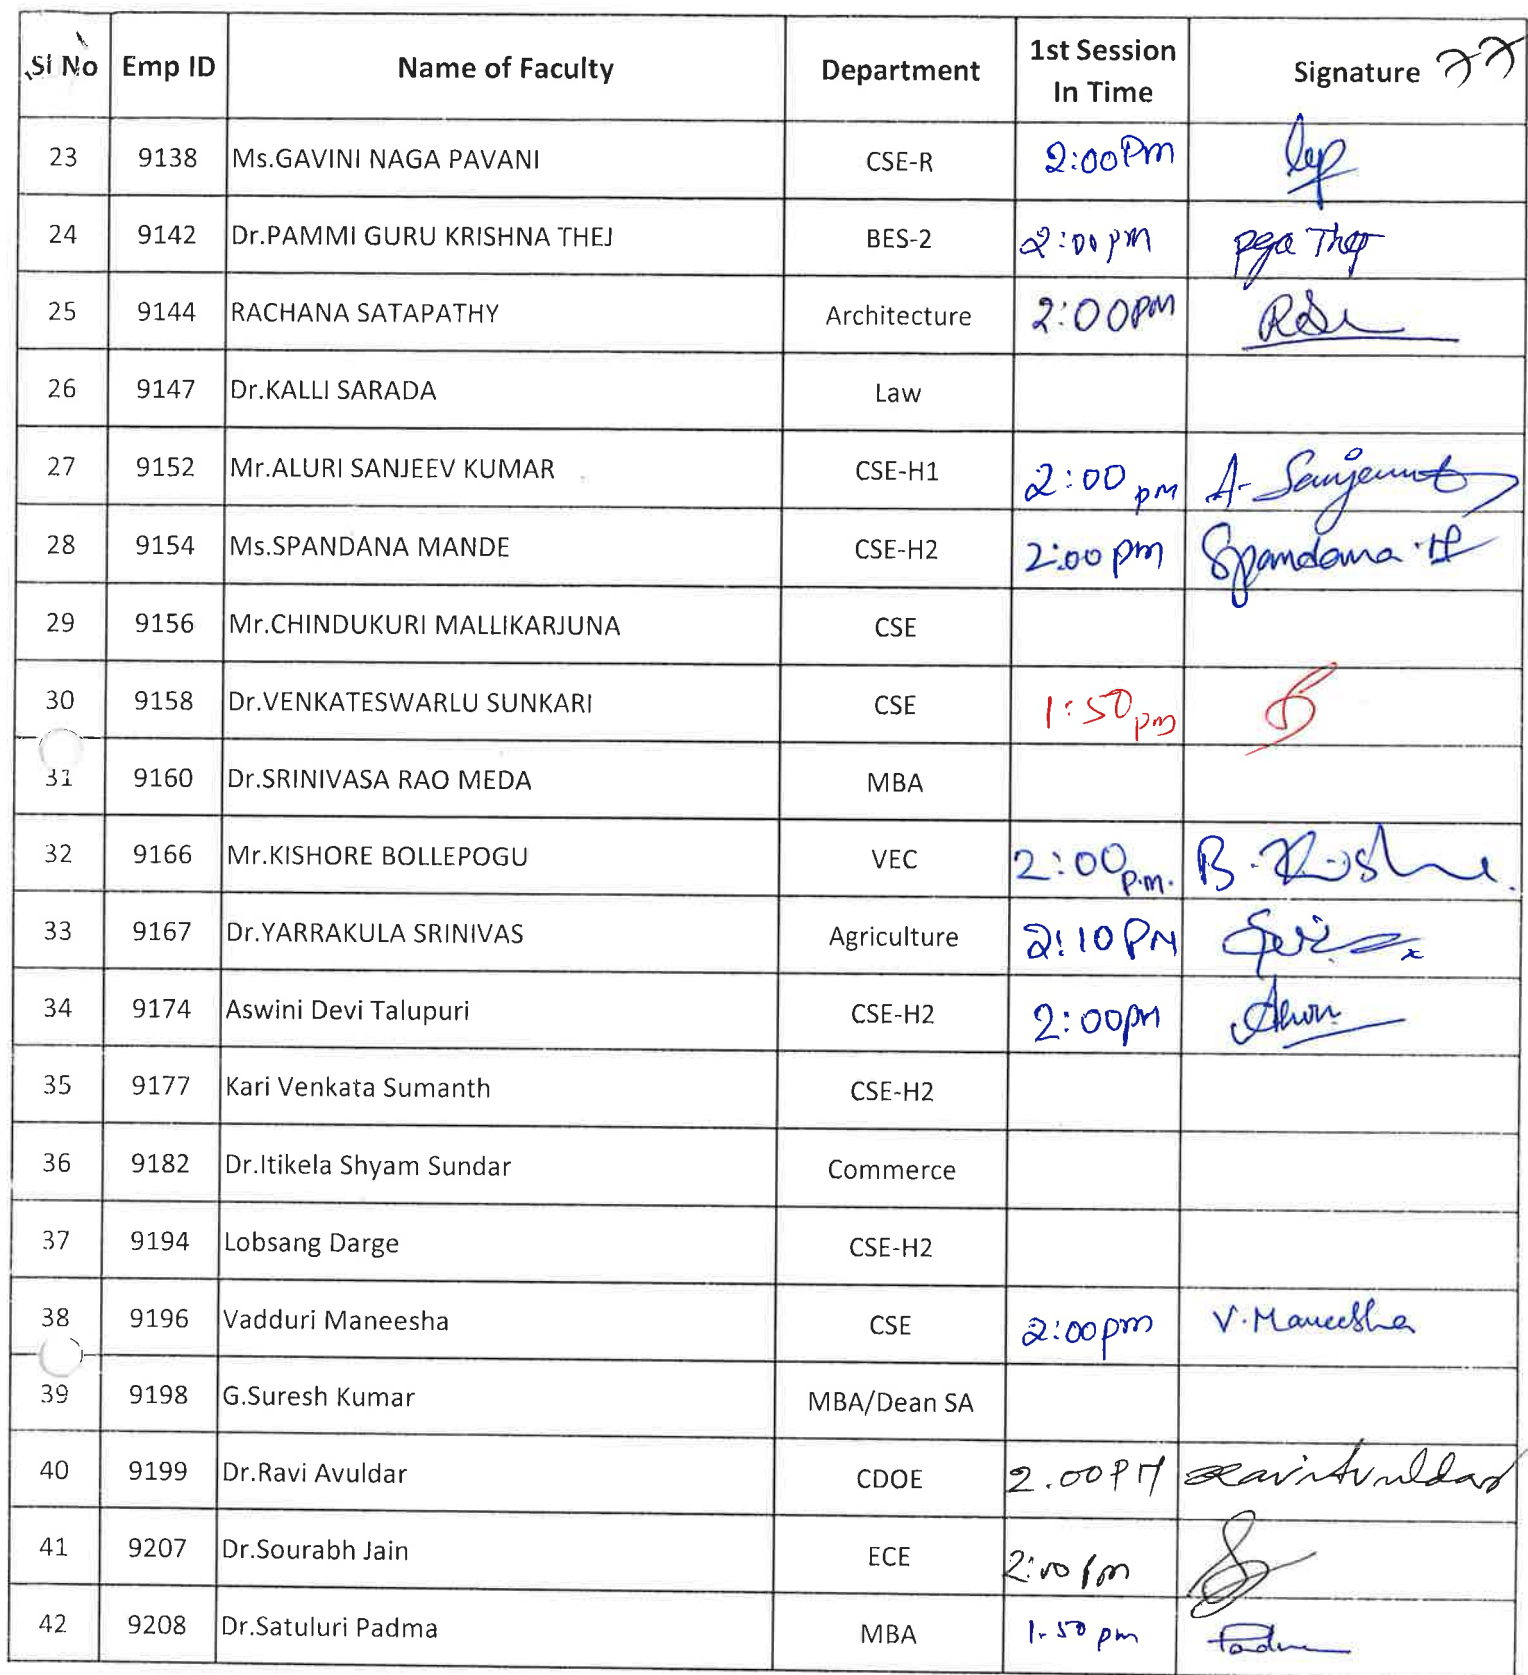 Sl No Emp ID Name of Faculty Department 1st Session In Time Signature
23 9138 Ms.GAVINI NAGA PAVANI CSE-R 2:00Pm
24 9142 Dr.PAMMI GURU KRISHNA THEJ BES-2 2:00pm
25 9144 RACHANA SATAPATHY Architecture 2:00PM
26 9147 Dr.KALLI SARADA Law
27 9152 Mr.ALURI SANJEEV KUMAR CSE-H1 2:00 pm A-
28 9154 Ms.SPANDANA MANDE CSE-H2 2:00 pm Spandana
29 9156 Mr.CHINDUKURI MALLIKARJUNA CSE
30 9158 Dr.VENKATESWARLU SUNKARI CSE 1:50 pm
31 9160 Dr.SRINIVASA RAO MEDA MBA
32 9166 Mr.KISHORE BOLLEPOGU VEC 2:00 p.m. B.
33 9167 Dr.YARRAKULA SRINIVAS Agriculture 2:10 PM
34 9174 Aswini Devi Talupuri CSE-H2 2:00pm
35 9177 Kari Venkata Sumanth CSE-H2
36 9182 Dr.Itikela Shyam Sundar Commerce
37 9194 Lobsang Darge CSE-H2
38 9196 Vadduri Maneesha CSE 2:00pm V.Maneesha
39 9198 G.Suresh Kumar MBA/Dean SA
40 9199 Dr.Ravi Avuldar CDOE 2.00PM RaviAvuldar
41 9207 Dr.Sourabh Jain ECE 2:00 pm
42 9208 Dr.Satuluri Padma MBA 1.50 pm Padma